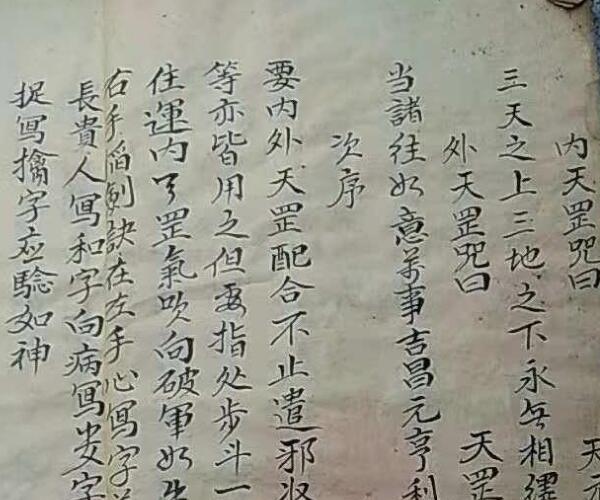 内天罡咒曰 天元
三天之上三地之下永無相繹
外天罡咒曰 天罡
当諸往如意萬事吉昌元亨利
次序
要内外天罡配合不止遣邪
等亦皆用之但要指处步斗一
住運内天罡氣吹向破軍如
右手掐劍訣在左手心寫字
長貴人寫和字向病寫安字
捉寫擒字应驗如神